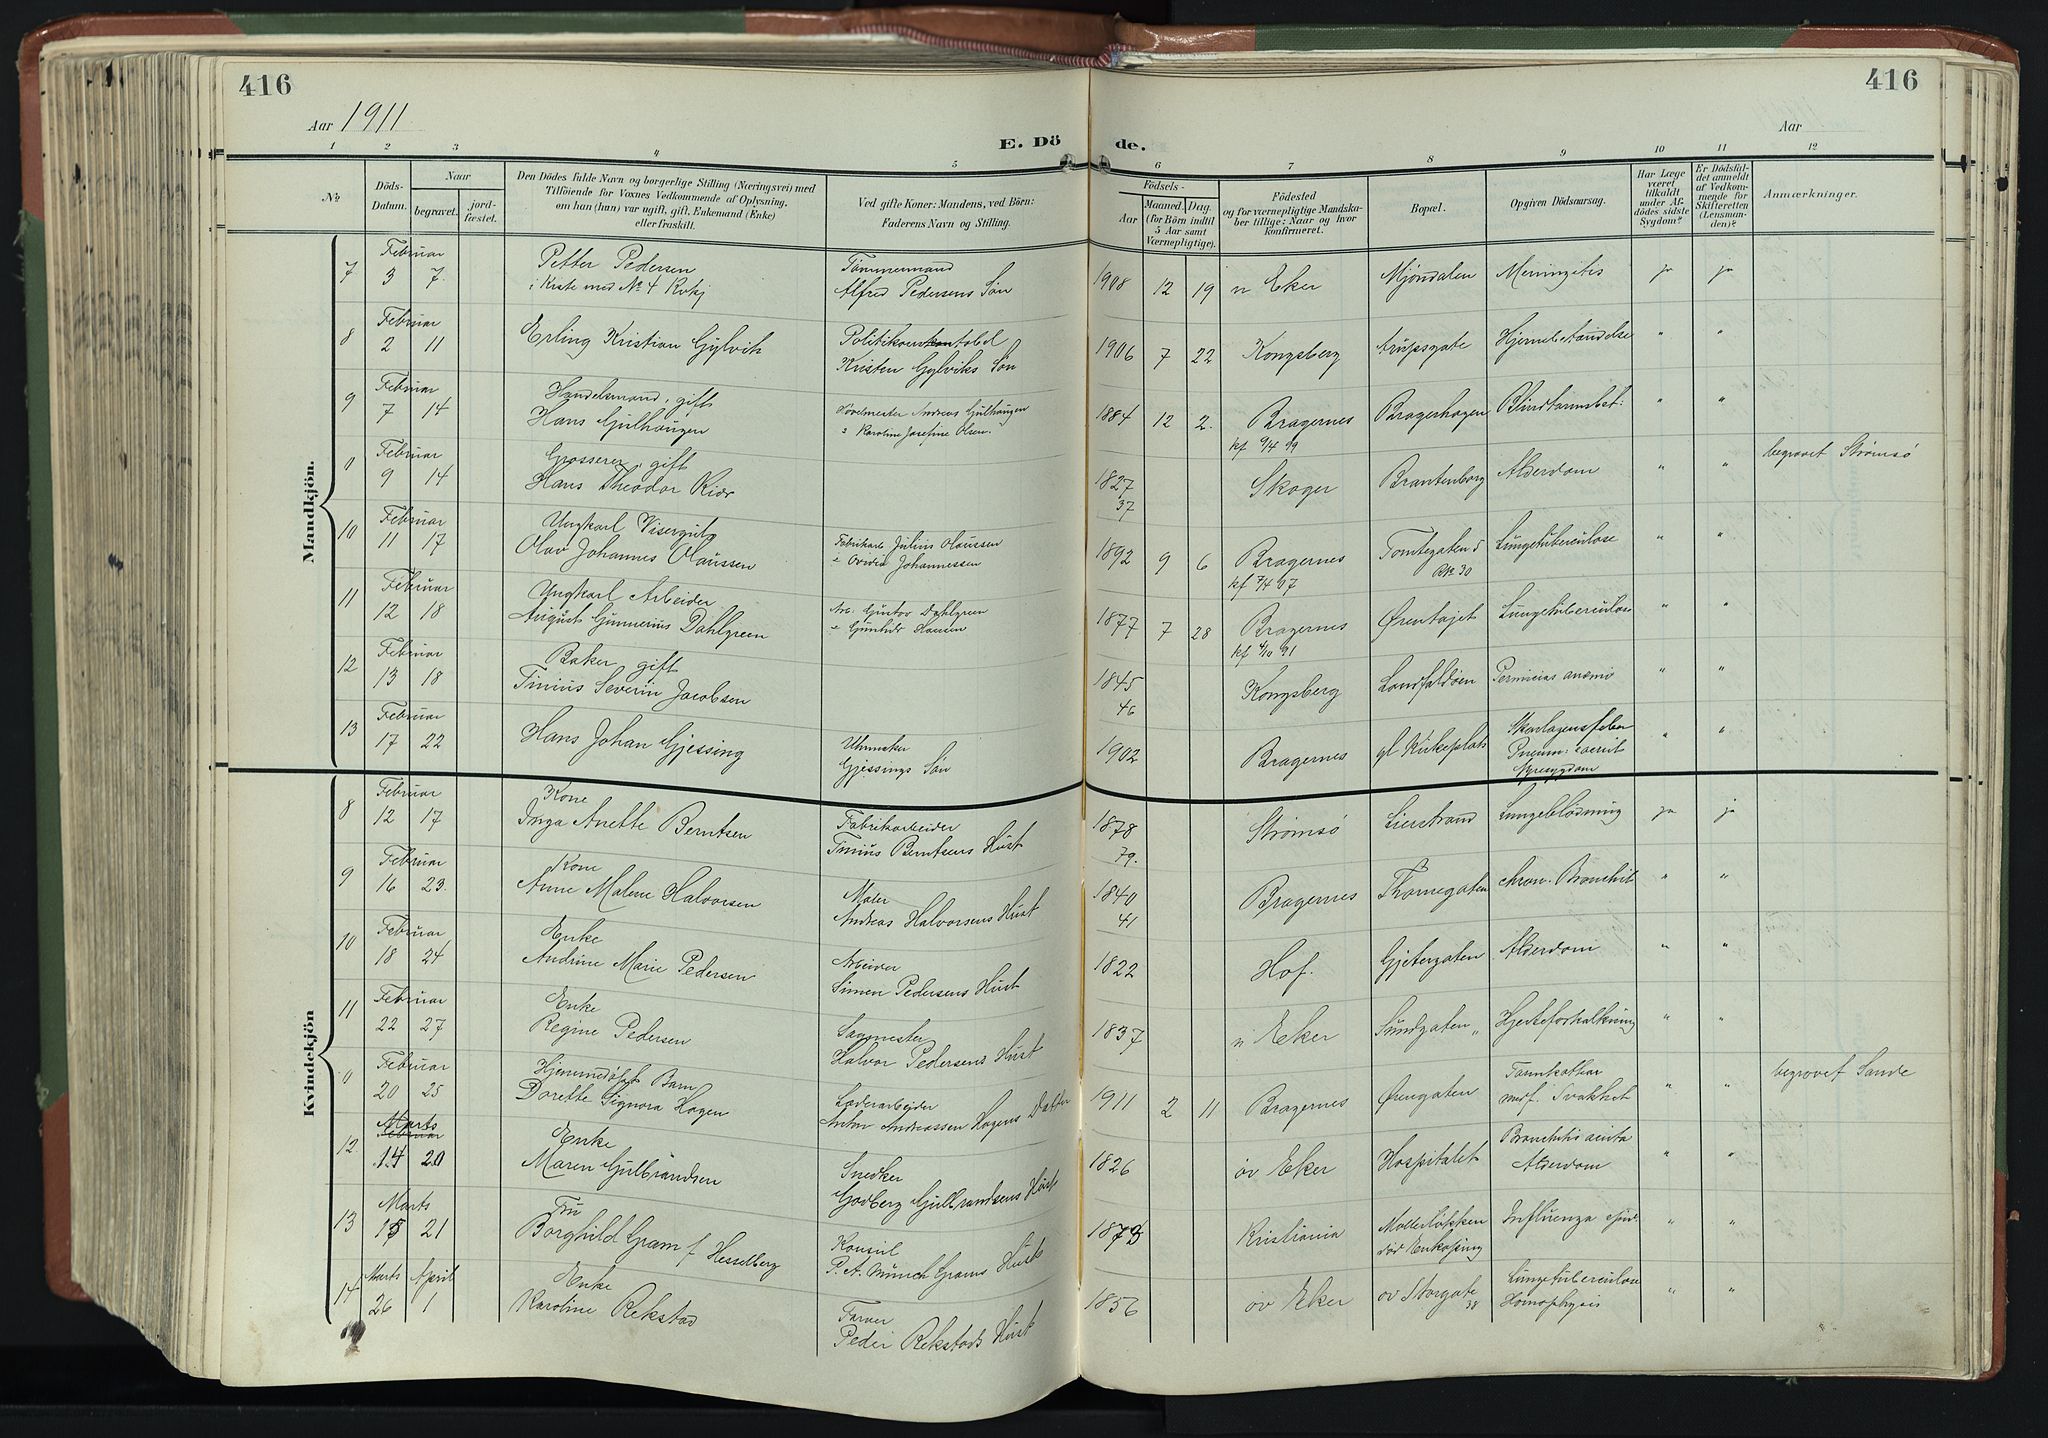 416
416
Aar 1911
Aar
E. Dö de.
1 2 3 4 5 6 7 8 9 10 11 12
No.
Döds-Datum.
Naar
begravet.
jord-fæstet.
Den Dödes fulde Navn og borgerlige Stilling (Næringsvei) med
Tilföiende for Voxnes Vedkommende af Oplysning,
om han (hun) var ugift, gift, Enkemand (Enke)
eller fraskilt.
Ved gifte Koner: Mandens, ved Börn:
Faderens Navn og Stilling.
Födsels-
Aar
Maaned. Dag.
(for Börn indtil
5 Aar samt
Værnepligtige).
Födested
og for værnepligtige Mandska-
ber tillige: Naar og hvor
konfirmeret.
Bopæl.
Opgiven Dödsaarsag.
Har Læge
været
tilkaldt
under Af-
dödes sidste
Sygdom?
Er Dödsfal-
det anmeldt
af Vedkom-
mende for
Skifteretten
(Lensman-
den)?
Anmærkninger.
Mandkjön.
7 Februar 3 7. Petter Pedersen
i Kiste med No 4 Kvkj
Tømmermand
Alfred Pedersens Søn
1908 12 19 n Eker Mjøndalen Meningitis ja ja
8 Februar 2 11 Erling Kristian Gylvik
Kristen Gylviks Søn
1906 7 22 Kongsberg Hjernebetændelse " "
9 Februar 7 14 Handelsmand, gift
Hans Gulhaugen
Andreas Gulhaugen
Karoline Josefine Olsen.
1884 12 2. Bragernes Brageshagen Blindtarmsbet. " "
kf 9/4 99
0 Februar 9 14 Grosserer, gift
Hans Theodor Kiær
1827
37
Skoger Brantenborg Alderdom " " begravet Strømsø
10 Februar 11 17 Ungkarl Visergut
Olav Johannes Olaussen
Fabrikarb. Julius Olaussen
Johannessen
1892 9 6 Bragernes Tomtegaten 5 Lungetuberculose " "
kf 7/4 07
11 Februar 12 18 Ungkarl Arbeider
August Gunnerius Dahlgreen
Arb. Gustav Dahlgreen
Gunhild Hansen
1877 7 28 Bragernes Ørentajet Lungetuberculose " "
kf 4/10 91
12 Februar 13 18 Baker gift
Tinius Severin Jacobsen
1845
46
Kongsberg Landfaldøen Perniciøs anæmi " "
13 Februar 17 22 Hans Johan Gjessing
Uhrmaker
Gjessings Søn
1902 Bragernes gl Kirkeplads Skarlagensfeber " "
Nyresygdom
Kvindekjön
8 Februar 12 17 Kone
Inga Anette Berntsen
Fabrikarbeider
Tinius Berntsens Hust
1878
79.
Strømsø Lierstrand Lungeblødning ja ja
9 Februar 16 23. Kone
Anne Malene Halvorsen
Maler
Andreas Halvorsens Hust
1840
41
Bragernes Thornegaten chron. Bronchit " "
10 Februar 18 24 Enke
Andrine Marie Pedersen
Arbeider
Simen Pedersens Hust
1822 Hof. Gjetergaten Alderdom " "
11 Februar 22 27 Enke
Regine Pedersen
Sagmester
Halvor Pedersens Hust
1837 n Eker Sundgaten Hjerteforkalkning " "
0 Februar 20 25 Hjemmedøbt Barn
Dorette Signora Hagen
Læderarbeider
Anton Andreassen Hagens Datter
1911 2 11 Bragernes Ørengaten Tarmkathar
medf. Svakhet " " begravet Sande
12 Marts Februar 14 20 Enke
Maren Gulbrandsen
Snedker
Godberg Gulbrandsens Hust
1826 øv Eker Hospitalet Bronchitis acuta
Alderdom " "
13 Marts 15 21 Fru
Borghild Gram f Hesselberg
Konsul
P. A. Münch Grams Hust
1873 Kristiania Møllerløkken Influenza " "
død Enkøping
14 Marts 26 April 1 Enke
Karoline Rekstad
Farver
Peder Rekstads Hust
1856 øv Eker øv Storgate 38 Lungetuberculose " "
Hæmophysis